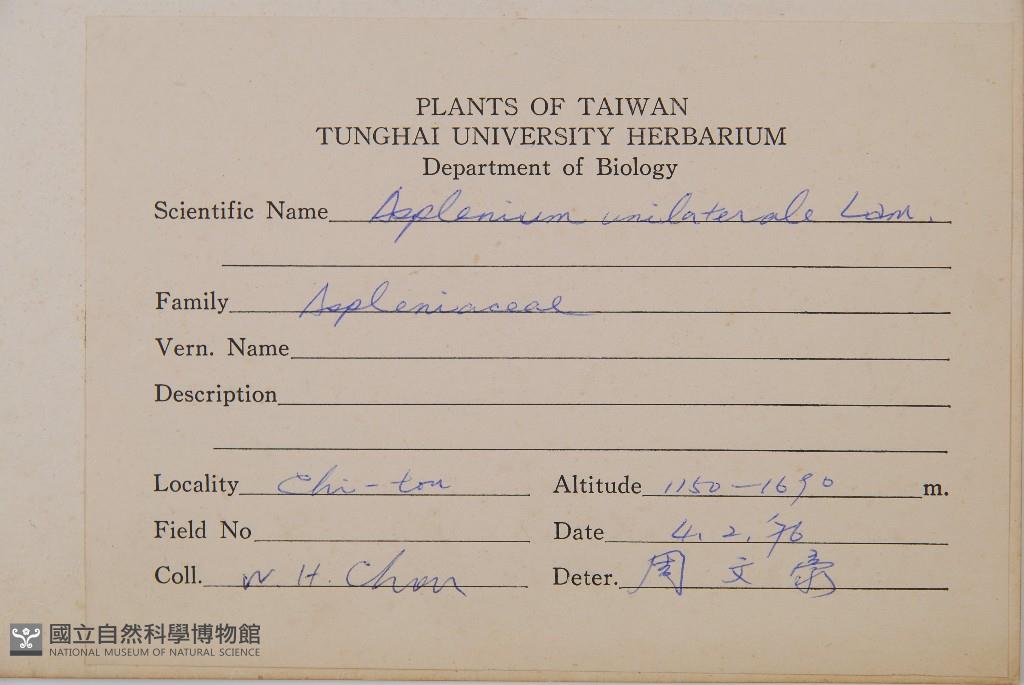 PLANTS OF TAIWAN
TUNGHAI UNIVERSITY HERBARIUM
Department of Biology
Scientific Name Asplenium unilaterale Lam.
Family Aspleniaceae
Vern. Name
Description
Locality Chi-tou Altitude 1150-1690 m.
Field No Date 4. 2. '76
Coll. W. H. Chou Deter. 周文豪
國立自然科學博物館
NATIONAL MUSEUM OF NATURAL SCIENCE